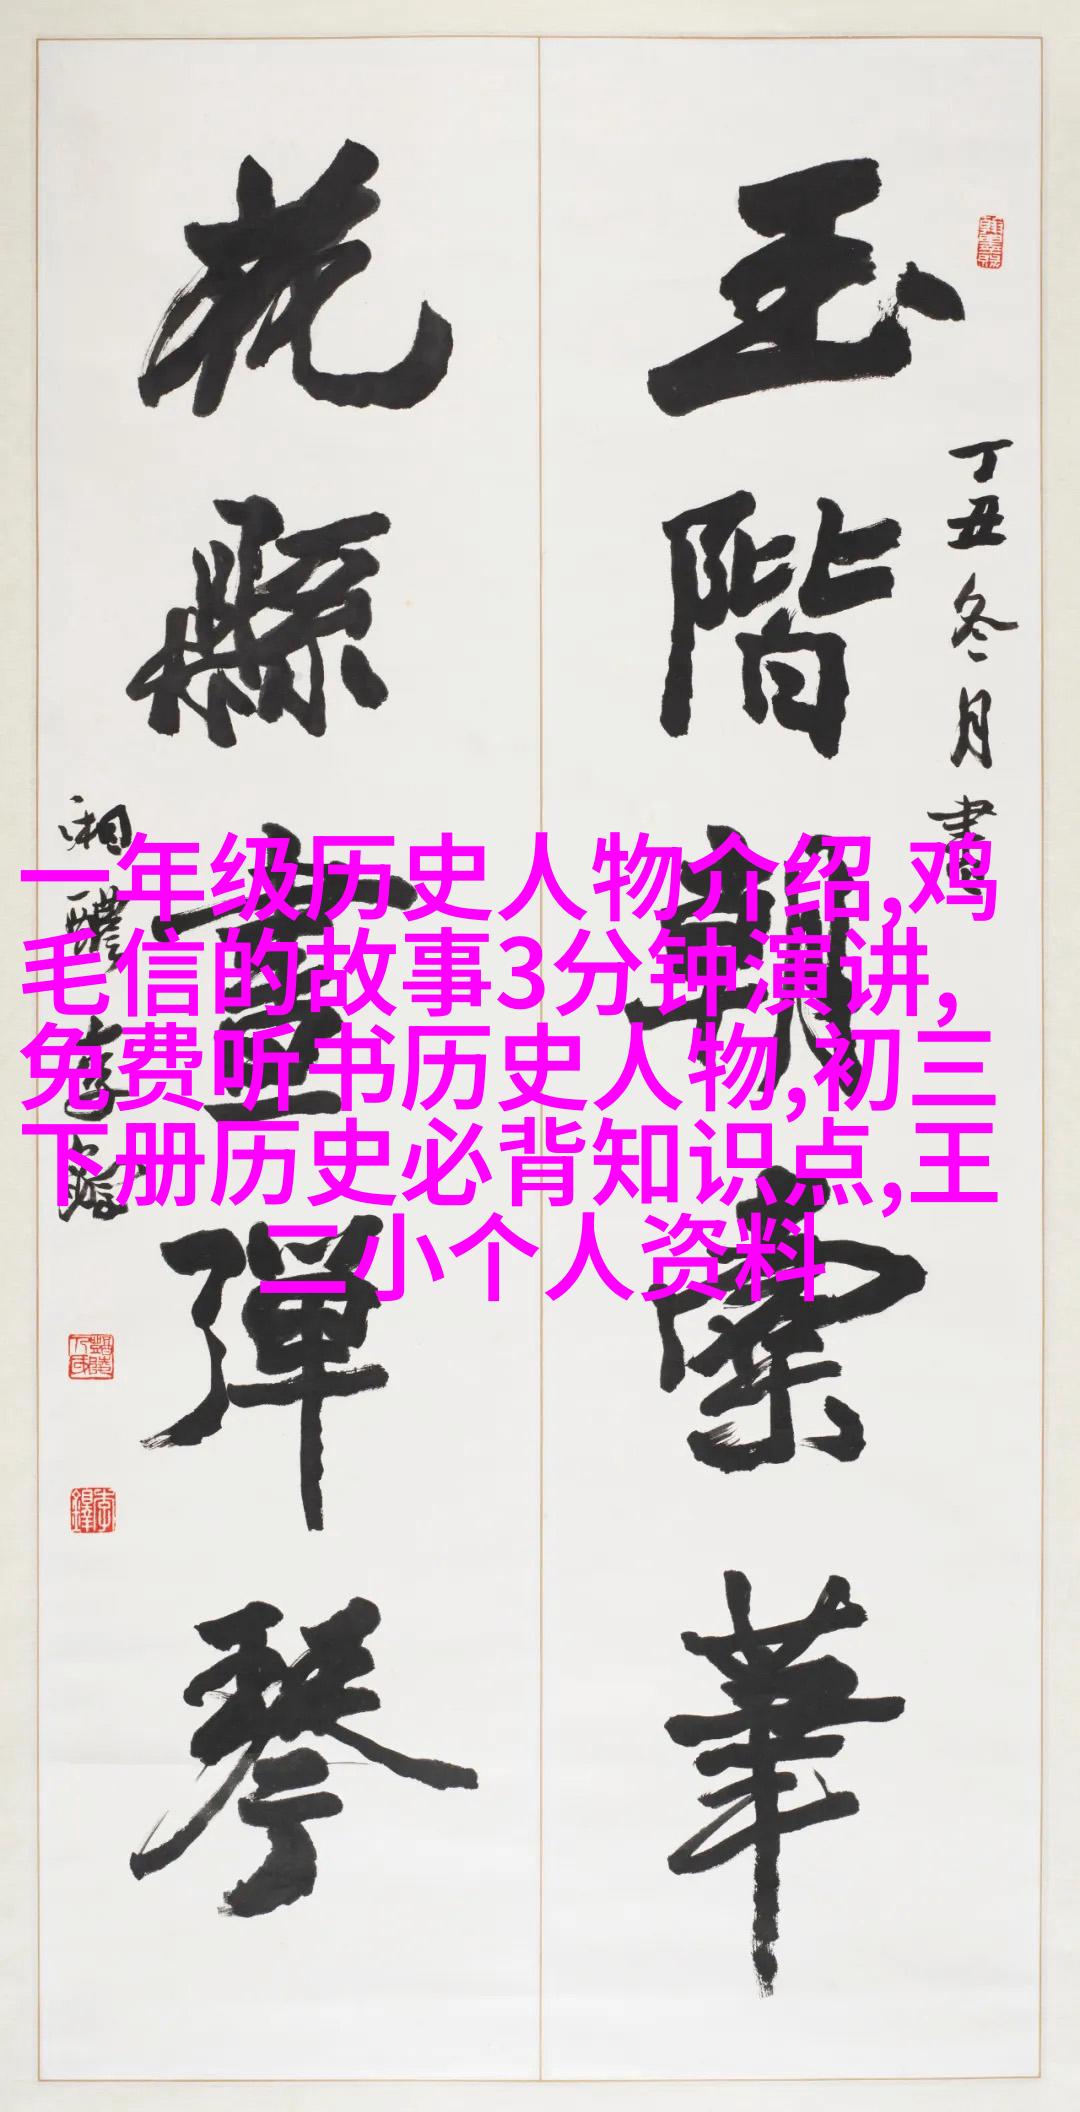 丁丑冬月書
玉階朝橐筆
花縣晝彈琴
湘醴李鐸
李鐸
一年级历史人物介绍,鸡
毛信的故事3分钟演讲,
免费听书历史人物,初三
下册历史必背知识点,王
二小个人资料